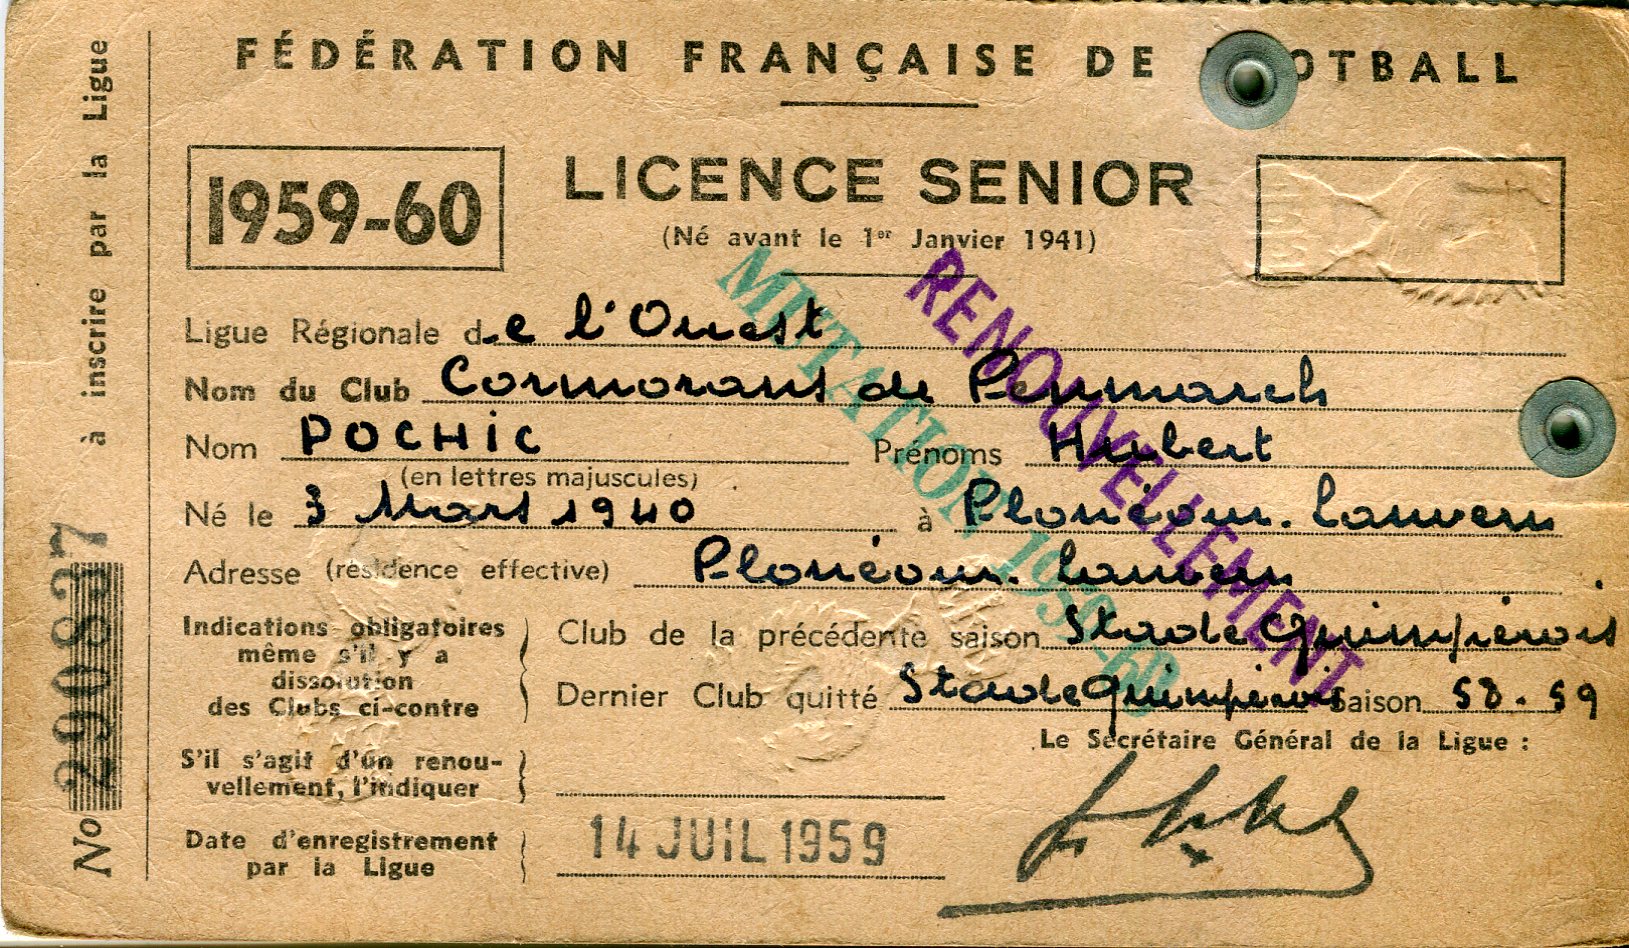 FÉDÉRATION FRANÇAISE DE OTBALL
1959-60
LICENCE SENIOR
(Né avant le 1er Janvier 1941)
Ligue Régionale de l'Ouest
Nom du Club Cormorans de Penmarch
Nom POCHIC Prénoms Hubert
(en lettres majuscules)
Né le 3 Mars 1940 à Plonéour-Lanvern
Adresse (résidence effective) Plonéour-Lanvern
Indications obligatoires
même s'il y a
dissolution
des Clubs ci-contre
Club de la précédente saison Stade Quimpérois
Dernier Club quitté Stade Quimpérois Saison 58-59
Le Secrétaire Général de la Ligue :
S'il s'agit d'un renou-
vellement, l'indiquer
Date d'enregistrement
par la Ligue
14 JUIL 1959
RENOUVELLEMENT
MUTATION 1959-60
No 290837
à inscrire par la Ligue